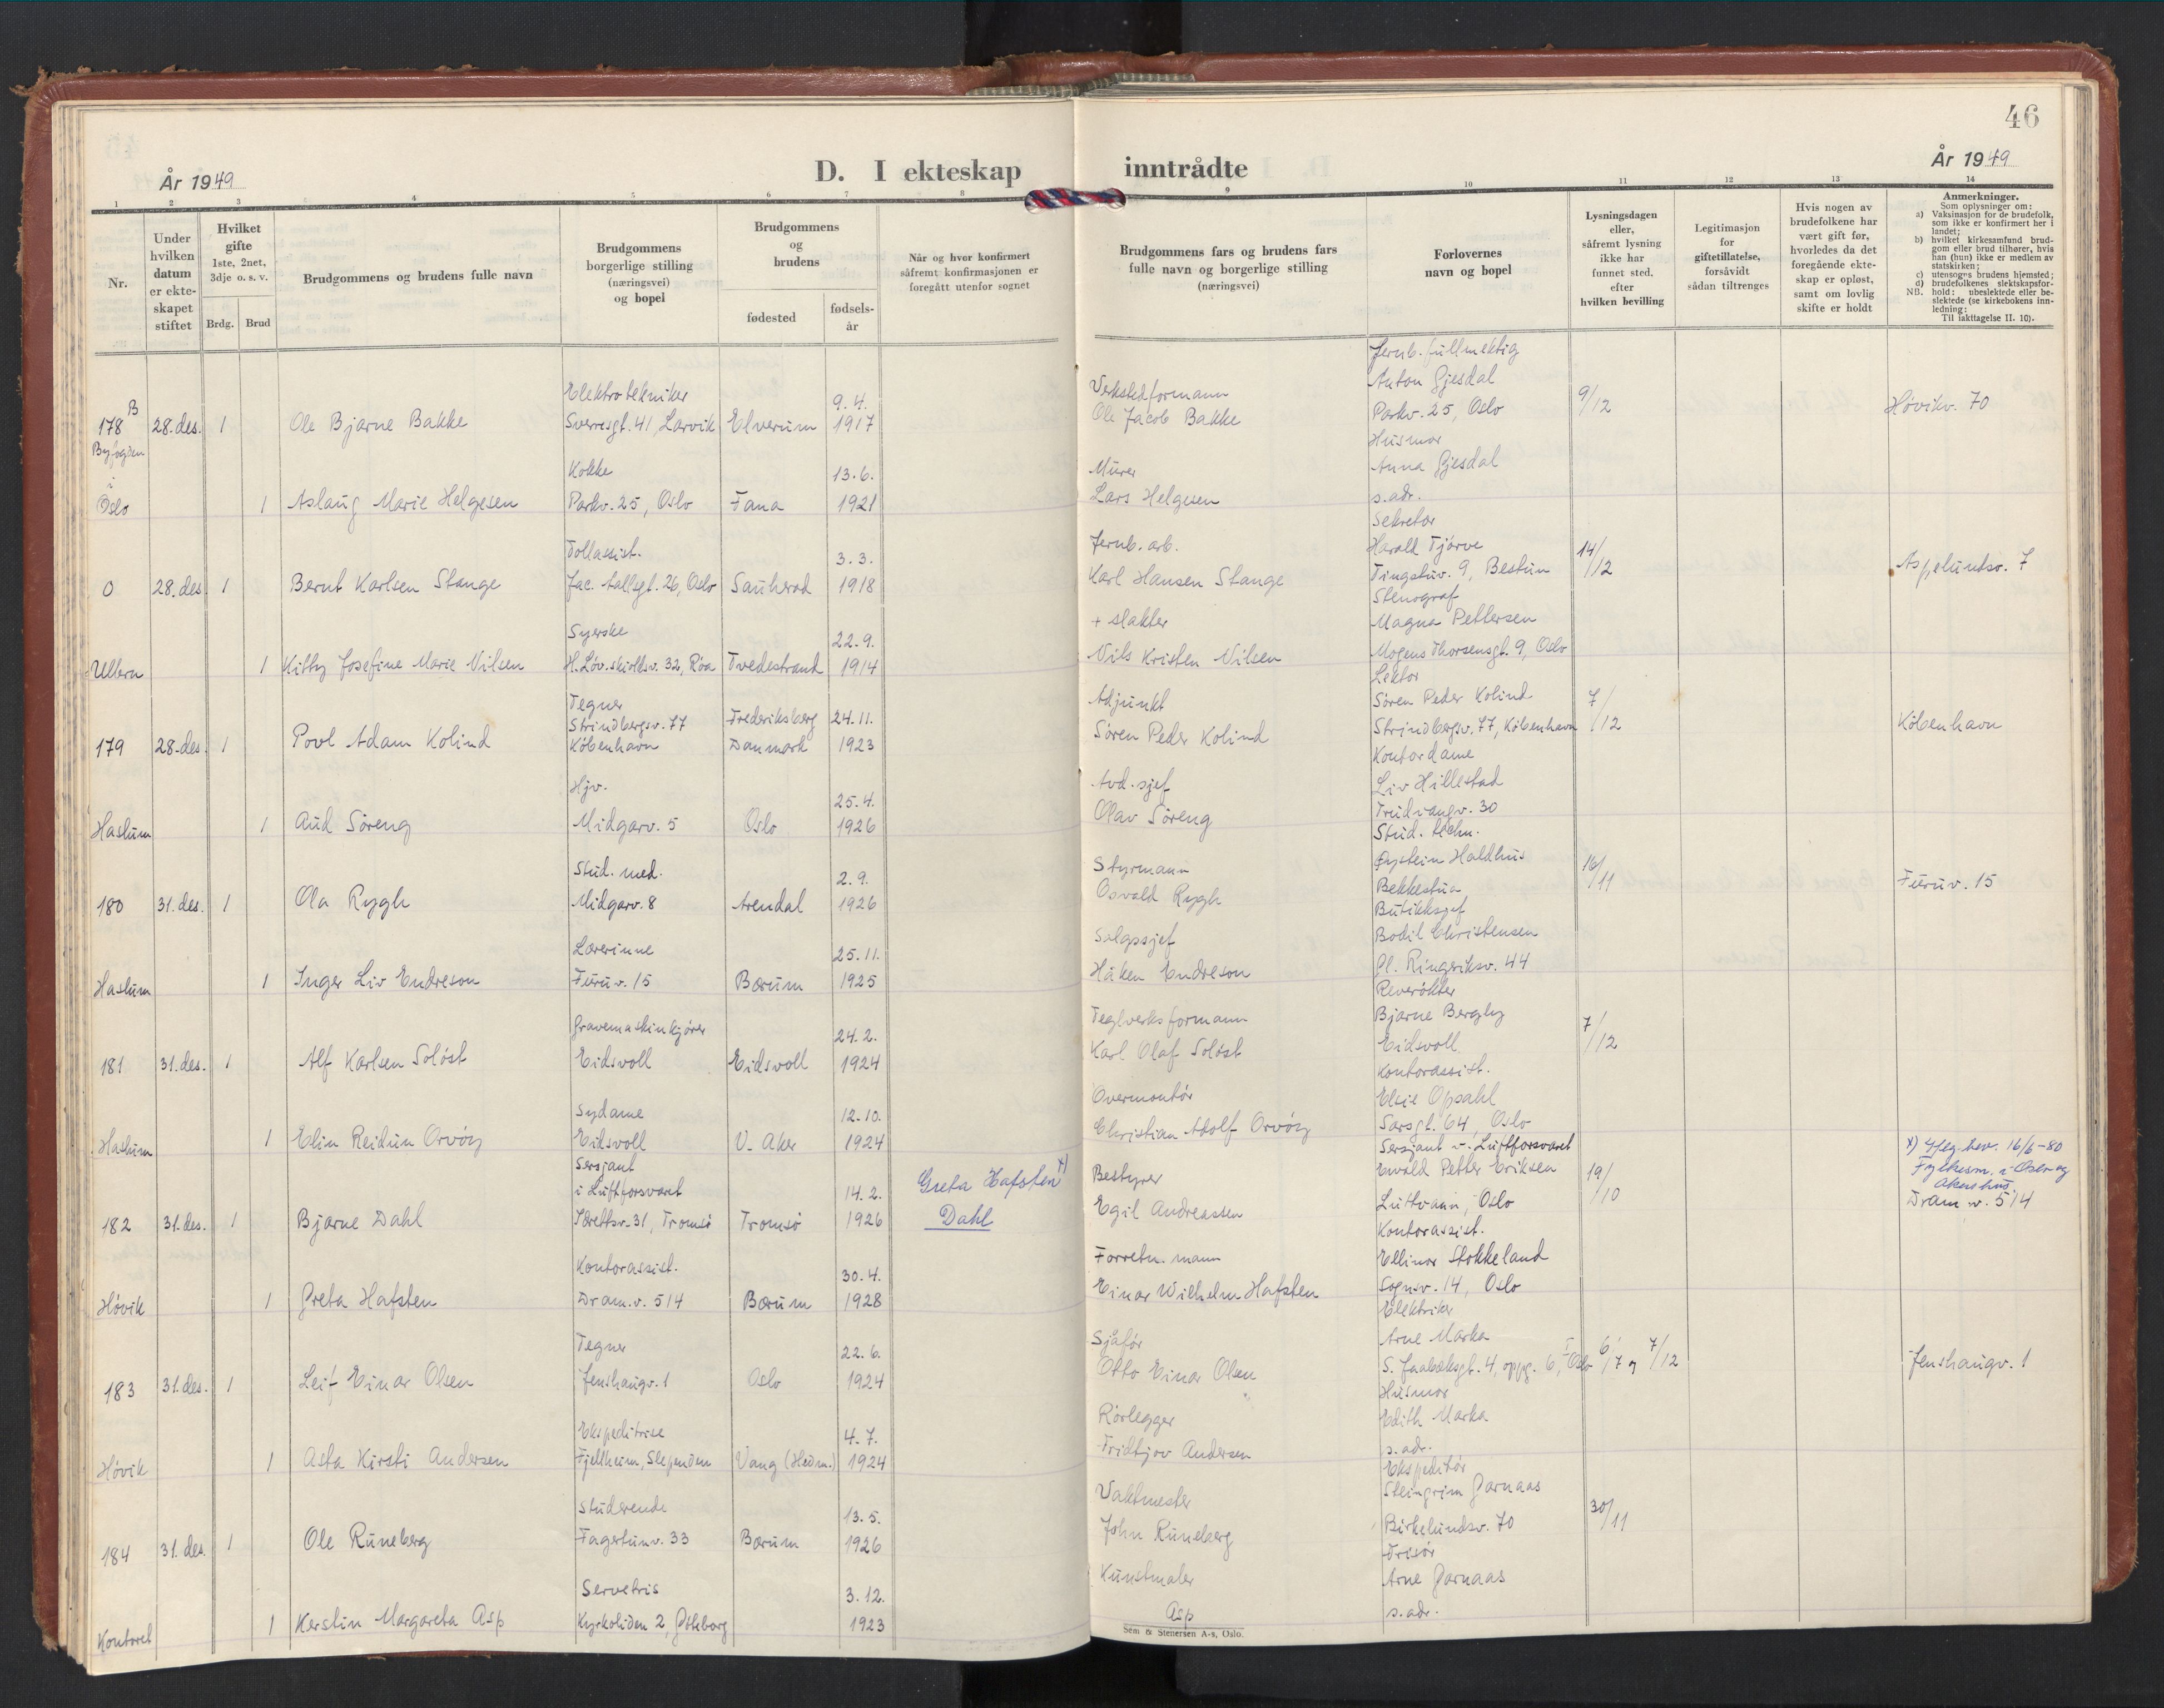 46
År 1949
D. I ekteskap inntrådte
År 1949
1 2 3 4 5 6 7 8 9 10 11 12 13 14
Nr.
Under hvilken datum er ekte-skapet stiftet
Hvilket gifte 1ste, 2net, 3dje o. s. v.
Brdg. Brud
Brudgommens og brudens fulle navn
Brudgommens borgerlige stilling (næringsvei) og bopel
Brudgommens og brudens
fødested
fødsels-år
Når og hvor konfirmert såfremt konfirmasjonen er foregått utenfor sognet
Brudgommens fars og brudens fars fulle navn og borgerlige stilling (næringsvei)
Forlovernes navn og bopel
Lysningsdagen eller, såfremt lysning ikke har funnet sted, efter hvilken bevilling
Legitimasjon for giftetillatelse, forsåvidt sådan tiltrenges
Hvis nogen av brudefolkene har vært gift før, hvorledes da det foregående ekte-skap er opløst, samt om lovlig skifte er holdt
Anmerkninger.
Som oplysninger om:
a) Vaksinasjon for de brudefolk, som ikke er konfirmert her i landet;
b) hvilket kirkesamfund brud-gom eller brud tilhører, hvis han (hun) ikke er medlem av statskirken;
c) utensogns brudens hjemsted;
d) brudefolkenes slektskapsfor-
NB. hold: ubeslektede eller be-slektede (se kirkebokens inn-ledning:
Til iakttagelse II. 10).
178 B 28. des. 1 Ole Bjarne Bakke Elektrotekniker Sverresgt. 41, Larvik Elverum 9.4. 1917 Verkstedformann Ole Jacob Bakke Jernb. fullmektig Anton Gjesdal Parkv. 25, Oslo 9/12 Høvikv. 70
Byfogden i Oslo 1 Aslaug Marie Helgesen Kokke Parkv. 25, Oslo Fana 13.6. 1921 Murer Lars Helgesen Husmor Anna Gjesdal s. adr.
0 28. des 1 Bernt Karlsen Stange Tollassist. Jac. Aallsgt. 26, Oslo Sauherad 3.3. 1918 Jernb. arb. Karl Hansen Stange Sekretær Harald Tjørve Tingstuv. 9, Bestun 14/12 Aspelundsv. 7
Ullern 1 Kitty Josefine Marie Nilsen Syerske H. Løvenskioldsv. 32, Røa Tvedestrand 22.9. 1914 + slakter Nils Kristen Nilsen Stenograf Magna Pettersen Mogens Thorsensgt. 9, Oslo
179 28. des. 1 Povl Adam Kolind Tegner Strindbergsv. 77 København Frederiksberg Danmark 24.11. 1923 Adjunkt Søren Peder Kolind Lektor Søren Peder Kolind Strindbergsv. 77, København 7/12 København
Haslum 1 Aud Søreng Hjv. Midgarv. 5 Oslo 25.4. 1926 Avd. sjef Olav Søreng Kontordame Liv Hillestad Trudvangv. 30
180 31. des. 1 Ola Rygh Stud. med. Midgarv. 8 Arendal 2.9. 1926 Styrmann Osvald Rygh Stud. techn. Øystein Haldhus Bekkestua 16/11 Furuv. 15
Haslum 1 Inger Liv Endreson Lærerinne Furuv. 15 Bærum 25.11. 1925 Salgssjef Håken Endreson Butikksjef Bodil Christensen Gl. Ringeriksv. 44
181 31. des. 1 Alf Karlsen Soløst Gravemaskinkjører Eidsvoll Eidsvoll 24.2. 1924 Teglverksformann Karl Olaf Soløst Reverøkter Bjarne Bergby Eidsvoll 7/12
Haslum 1 Elin Reidun Orvöy Sydame Eidsvoll V. Aker 12.10. 1924 Overmontør Christian Adolf Orvöy Kontorassist. Elsie Opsahl Sarsgt. 64, Oslo
182 31. des. 1 Bjarne Dahl Sersjant i Luftforsvaret 31, Tromsø Tromsø 14.2. 1926 Greta Hafsten x) Dahl Bestyrer Egil Andreassen Sersjant v. Luftforsvaret Ewald Petter Eriksen Luftvaann, Oslo 19/10 x) bev. 16/6-80 Fylkesm. i Oslo og Akershus Dram. v. 514
Høvik 1 Greta Hafsten Kontorassist. Dram. v. 514 Bærum 30.4. 1928 Forretn. mann Einar Wilhelm Hafsten Kontorassist. Ellinor Stokkeland Sognsv. 14, Oslo
183 31. des. 1 Leif Einar Olsen Tegner Jenshaugv. 1 Oslo 22.6. 1924 Sjåfør Otto Einar Olsen Elektriker Arne Marka S. Jaabæksgt. 4, oppg. 6, Oslo 6/7 og 7/12 Jenshaugv. 1
Høvik 1 Asta Kirsti Andersen Ekspeditrise Fjellheim, Slependen Vang (Hedm.) 4.7. 1924 Rørlegger Fridtjov Andersen Husmor Edith Marka s. adr.
184 31. des. 1 Ole Runeberg Studerende Fagertunv. 33 Bærum 13.5. 1926 Vaktmester John Runeberg Ekspeditør Steingrim Garnaas Birkelundsv. 70 30/11
Kontoret 1 Kerstin Margareta Asp Servetris Kyrkoliden 2, Göteborg 3.12. 1923 Kunstmaler Asp Frisør Arne Garnaas s. adr.
Sem & Stenersen A-s, Oslo.